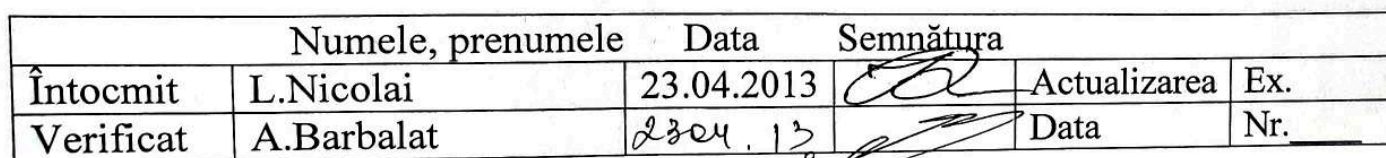 Numele, prenumele Data Semnătura
Întocmit L.Nicolai 23.04.2013 Actualizarea Ex.
Verificat A.Barbalat 2304.13 Data Nr.